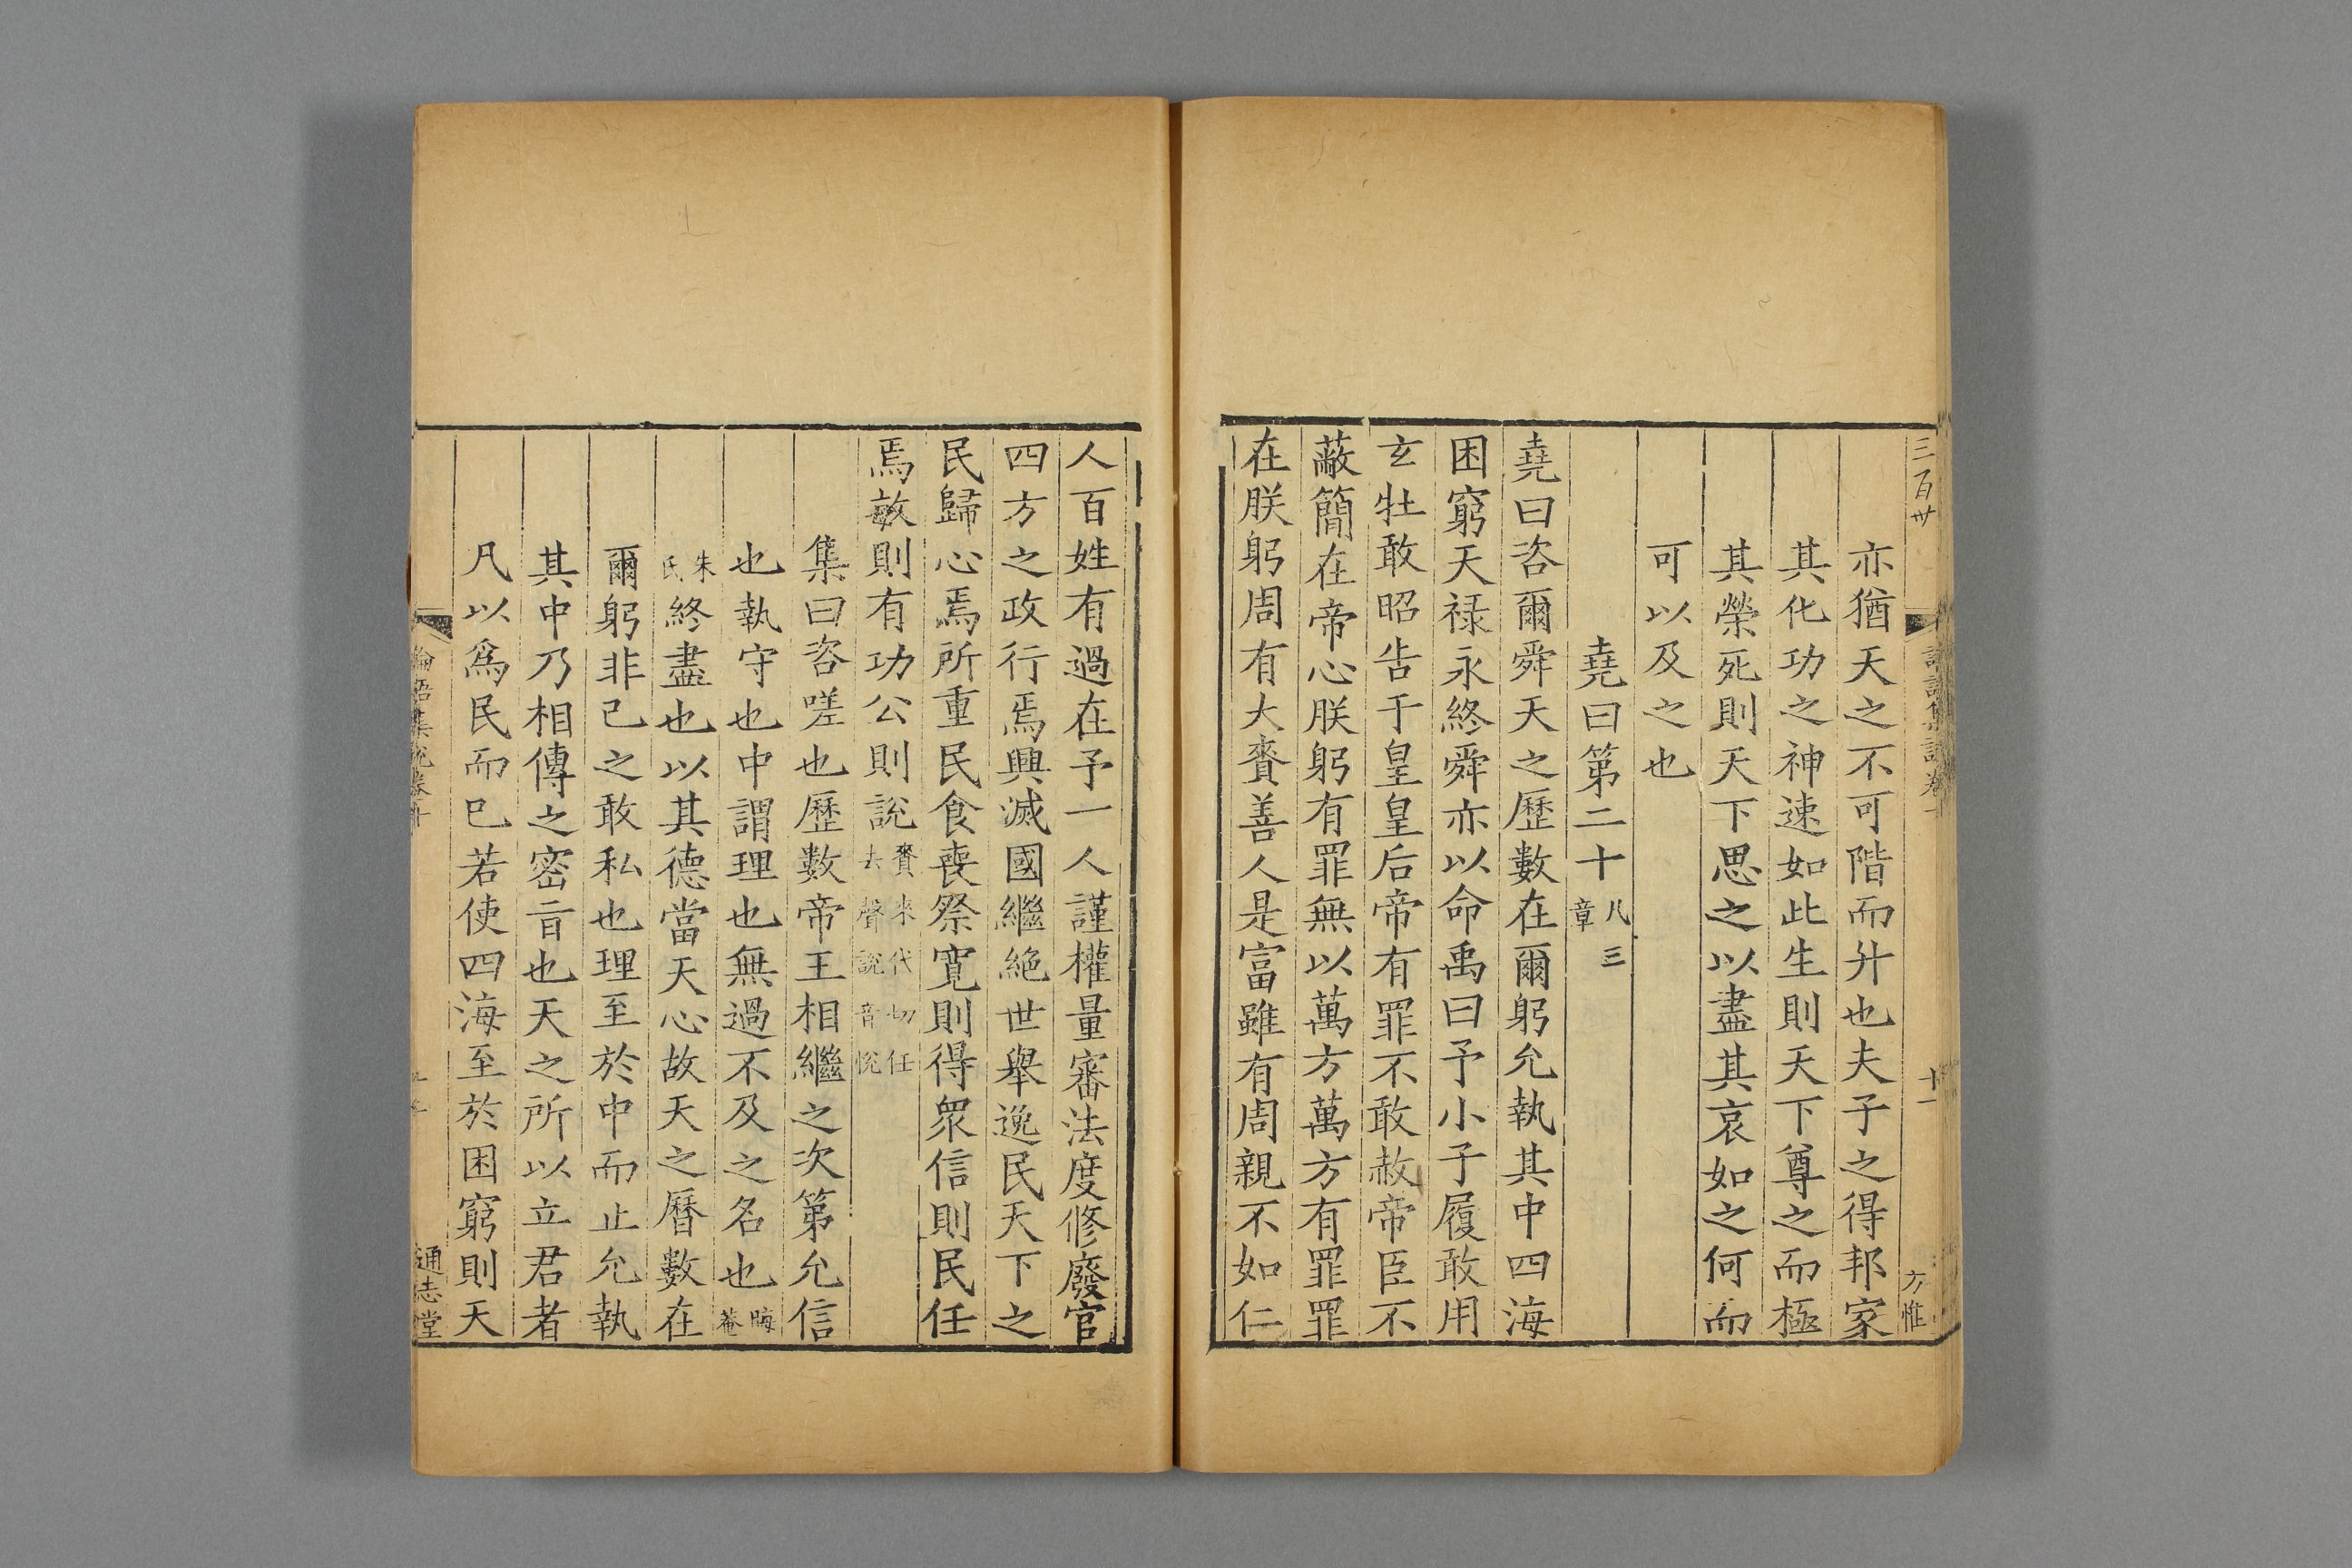 三百廿
亦猶天之不可階而升也夫子之得邦家
其化功之神速如此生則天下尊之而極
其榮死則天下思之以盡其哀如之何而
可以及之也
堯曰第二十
凡三
章
堯曰咨爾舜天之歷數在爾躬允執其中四海
困窮天祿永終舜亦以命禹曰予小子履敢用
玄牡敢昭告于皇皇后帝有罪不敢赦帝臣不
蔽簡在帝心朕躬有罪無以萬方萬方有罪罪
在朕躬周有大賚善人是富雖有周親不如仁
人百姓有過在予一人謹權量審法度修廢官
四方之政行焉興滅國繼絕世舉逸民天下之
民歸心焉所重民食喪祭寬則得眾信則民任
焉敏則有功公則說
賚來代切任
去聲說音悅
集曰咨嗟也歷數帝王相繼之次第允信
也執守也中謂理也無過不及之名也
晦
菴
朱
氏
終盡也以其德當天心故天之曆數在
爾躬非己之敢私也理至於中而止允執
其中乃相傳之密旨也天之所以立君者
凡以爲民而已若使四海至於困窮則天
論語集說卷十
通志堂